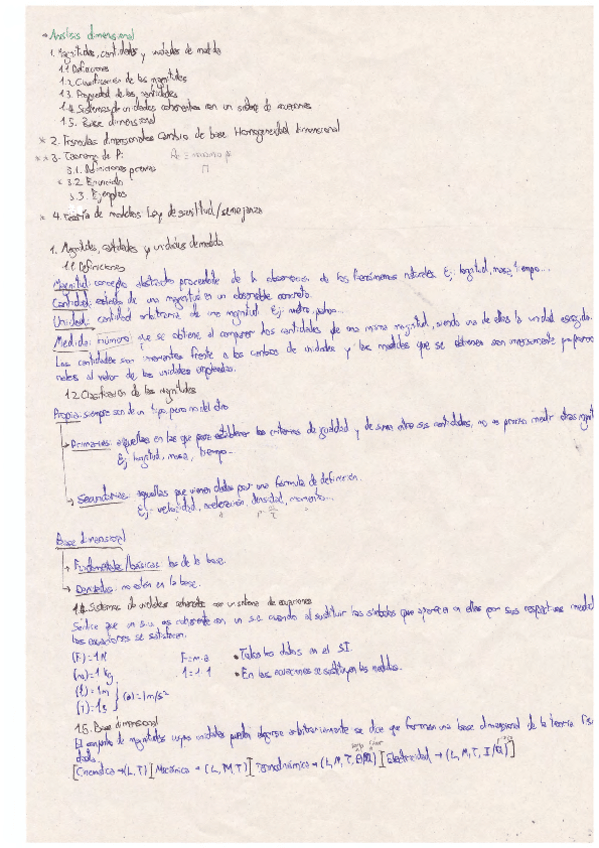 → Análisis dimensional
1. Magnitudes, cantidades y unidades de medida
1.1 Definiciones
1.2 Clasificación de las magnitudes
1.3. Propiedad de las cantidades
1.4 Sistemas de unidades coherentes con un sistema de ecuaciones
1.5. Base dimensional
* 2. Fórmulas dimensionales Cambio de base Homogeneidad dimensional
** 3. Teorema de Pi
3.1. Definiciones previas
* 3.2. Enunciado
3.3. Ejemplos
* 4. Teoría de modelos: Ley de similitud/semejanza
1. Magnitudes, cantidades y unidades de medida
1.1 Definiciones
Magnitud: concepto abstracto procedente de la observación de los fenómenos naturales Ej: longitud, masa, tiempo...
Cantidad: estado de una magnitud en un observable concreto.
Unidad: cantidad arbitraria de una magnitud Ej: metro,
Medida: número que se obtiene al comparar dos cantidades de una misma magnitud, siendo una de ellas la unidad escogida.
Las cantidades son invariantes frente a los cambios de unidades y las medidas que se obtienen son inversamente proporcio
nales al valor de las unidades empleadas.
1.2 Clasificación de las magnitudes
Propia: siempre son de un tipo, pero no del otro
→ Primarias: aquellas en las que para establecer los criterios de igualdad y de suma entre sus cantidades, no es preciso medir otras
Ej: longitud, masa, tiempo...
→ Secundarias: aquellas que vienen dadas por una fórmula de definición.
Ej: velocidad, aceleración, densidad, momento...
Base dimensional
→ Fundamentales/básicas: las de la base.
→ Derivadas: no están en la base.
1.4 Sistemas de unidades coherente con un sistema de ecuaciones
Se dice que un s.u. es coherente con un s.e. cuando al sustituir los símbolos que aparecen en ellas por sus respectivas medid
las ecuaciones se satisfacen.
(F) = 1N F = m·a • Todos los datos en el SI.
(m) = 1 kg 1 = 1·1 • En las ecuaciones se sustituyen las medidas.
(l) = 1m } (a) = 1m/s²
(T) = 1s
1.5. Base dimensional
El conjunto de magnitudes cuyas unidades pueden elegirse arbitrariamente se dice que forman una base dimensional de la teoría físi
dada.
[Cinemática → (L, T)] [Mecánica → (L, M, T)] [Termodinámica → (L, M, T, θ/Q)] [Electricidad → (L, M, T, I/Q)]